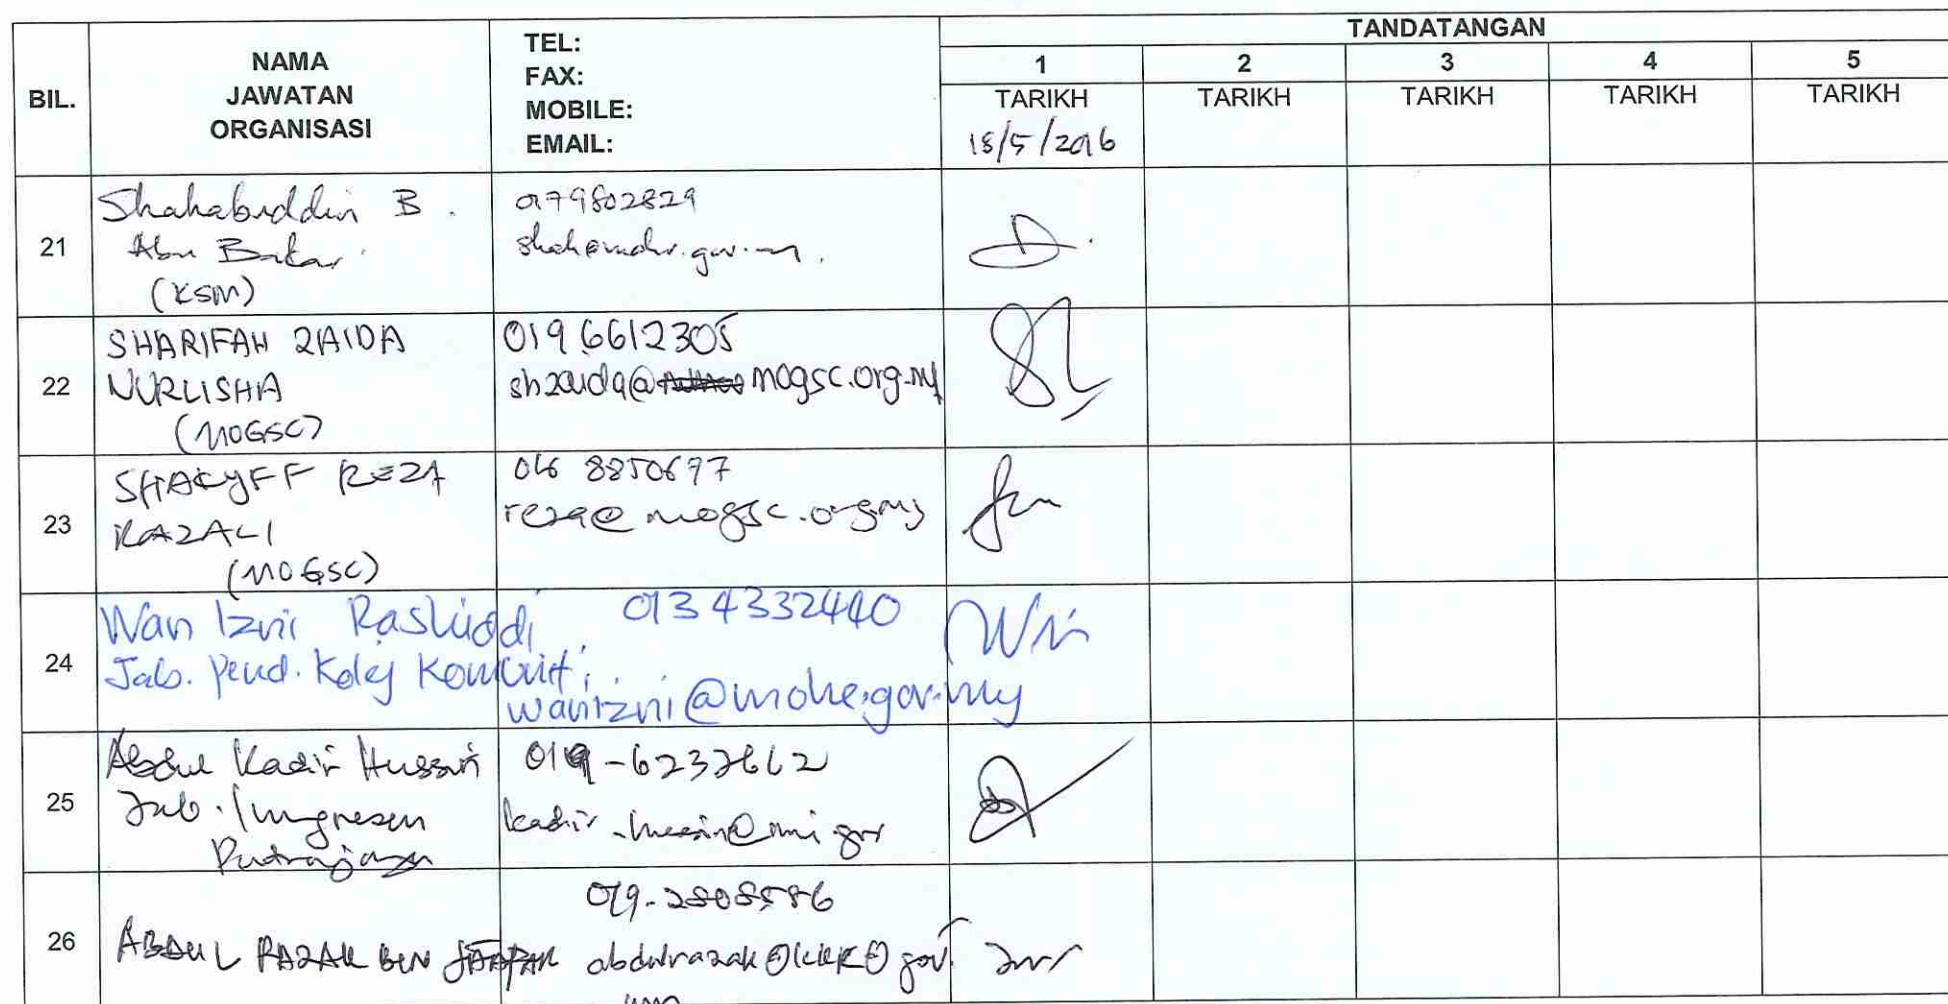 BIL.
NAMA
JAWATAN
ORGANISASI
TEL:
FAX:
MOBILE:
EMAIL:
TANDATANGAN
1 2 3 4 5
TARIKH TARIKH TARIKH TARIKH TARIKH
18/5/2016
21
Shahabuddin B.
Abu Bakar
(KSM)
0179802829
shah@mohr.gov.my.
22
SHARIFAH ZAIDA
NURLISHA
(MOGSC)
019 6612305
shzaida@ mogsc.org.my
23
SHACYFF REZA
RAZALI
(MOGSC)
016 8850697
reza@mogsc.org.my
24
Wan Izni Rashiddi
Jab. Pend. Kolej Komuniti
013 4332440
wanizni@mohe.gov.my
25
Abdul Kadir Hussin
Jab. Imigresen
Putrajaya
019-6232662
26
ABDUL RAZAK BIN JAAFAR
019-2808586